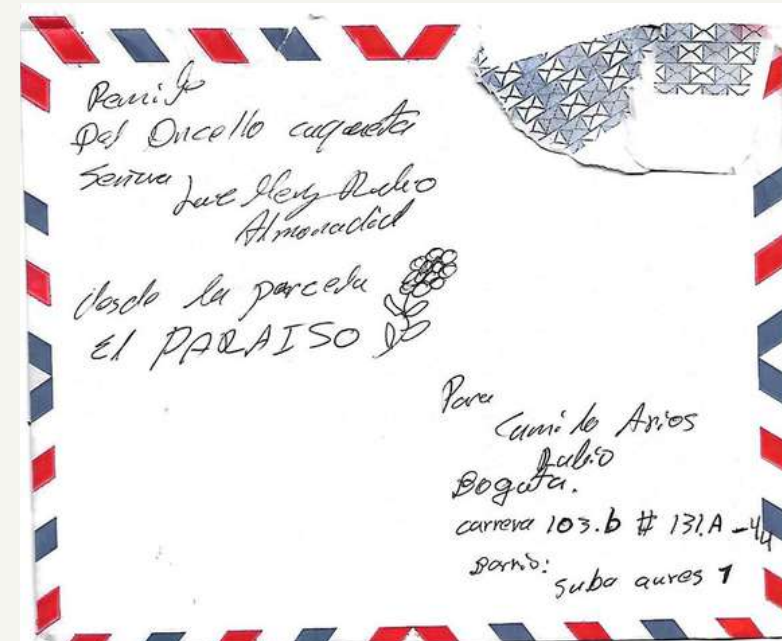 Remite
Del Doncello caqueta
Señora
Luz Mery Rubio
Almonacid
desde la parcela
El PARAISO
Para
Camilo Arios
Rubio
Bogota.
carrera 103.b # 131.A - 44
Barrio:
suba aures 1